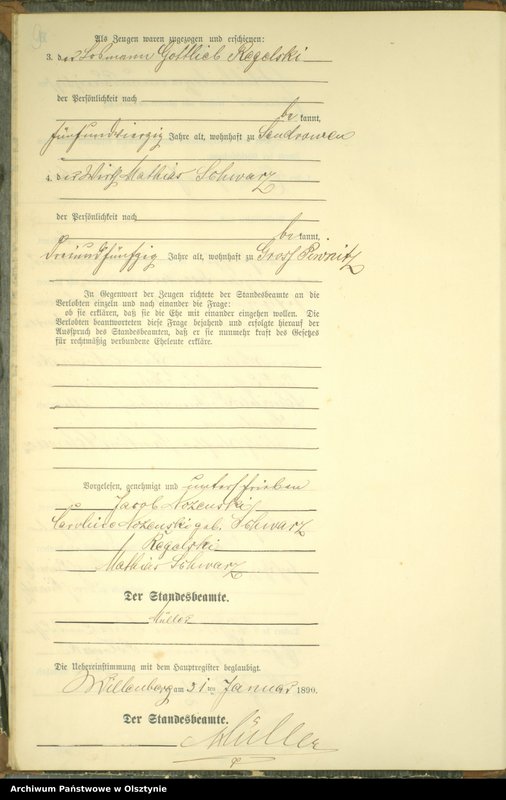 Als Zeugen waren zugezogen und erschienen:
3. der Losmann Gottlieb Regelski
der Persönlichkeit nach
be kannt,
fünfundvierzig Jahre alt, wohnhaft zu Sendrowen
4. der Wirth Mathias Schwarz
der Persönlichkeit nach
be kannt,
dreiundfünfzig Jahre alt, wohnhaft zu Gross Piwnitz
In Gegenwart der Zeugen richtete der Standesbeamte an die
Verlobten einzeln und nach einander die Frage:
ob sie erklären, daß sie die Ehe mit einander eingehen wollen. Die
Verlobten beantworteten diese Frage bejahend und erfolgte hierauf der
Ausspruch des Standesbeamten, daß er sie nunmehr kraft des Gesetzes
für rechtmäßig verbundene Eheleute erkläre.
Vorgelesen, genehmigt und unterschrieben
Jacob Nozenski
Caroline Nozenski geb. Schwarz
Regelski
Mathias Schwarz
Der Standesbeamte.
Müller
Die Uebereinstimmung mit dem Hauptregister beglaubigt.
Willenberg am 31 ten Januar 1890.
Der Standesbeamte.
Müller
Archiwum Państwowe w Olsztynie